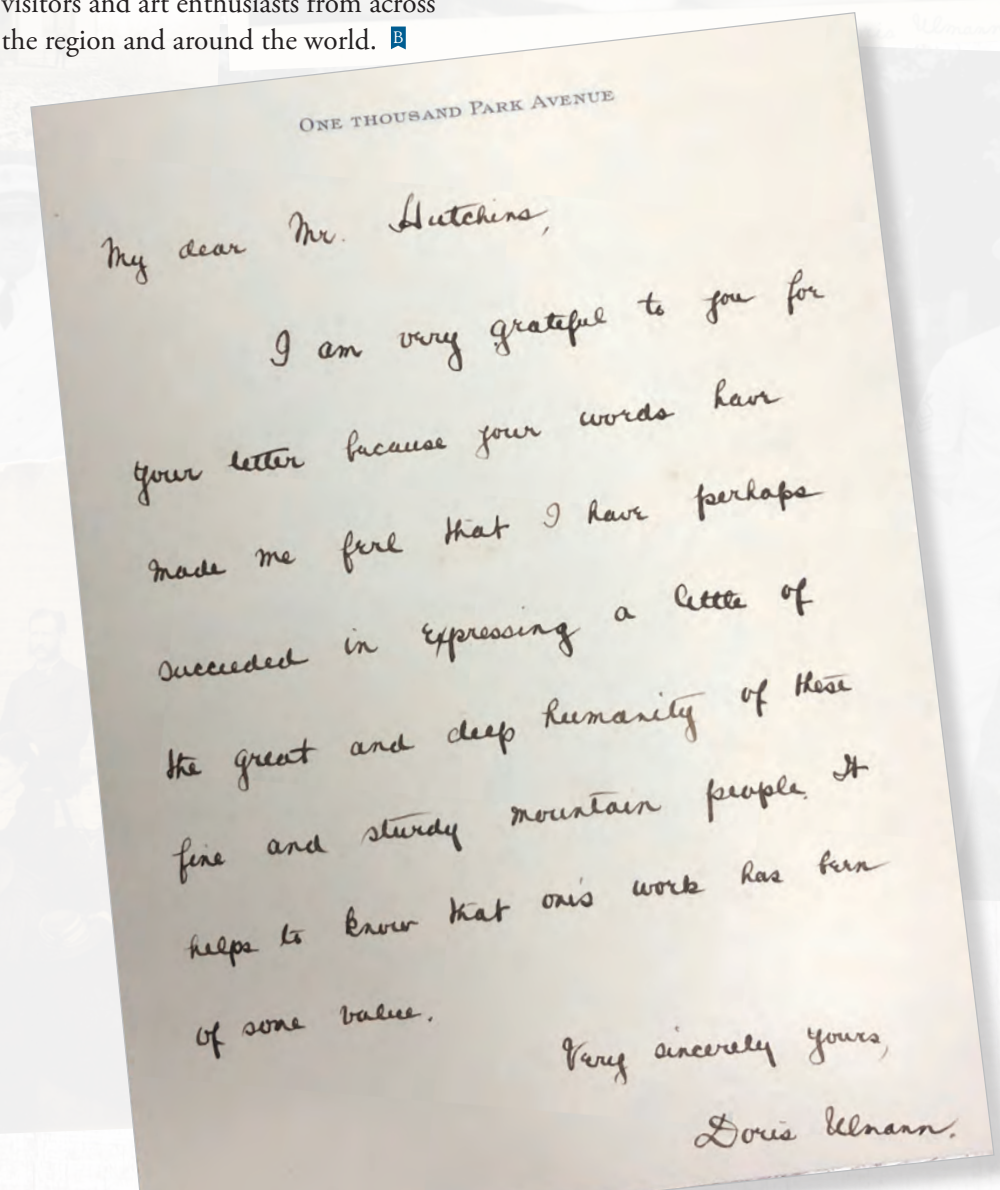 visitors and art enthusiasts from across
the region and around the world. B
ONE THOUSAND PARK AVENUE
My dear Mr. Hutchins,
I am very grateful to you for
your letter because your words have
made me feel that I have perhaps
succeeded in expressing a little of
the great and deep humanity of these
fine and sturdy mountain people. It
helps to know that one's work has been
of some value.
Very sincerely yours,
Doris Ulmann.